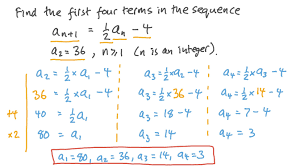 Find the first four terms in the sequence
aₙ₊₁ = ½aₙ - 4
a₂ = 36, n≥1 (n is an integer).
a₂ = ½×a₁ - 4
36 = ½×a₁ - 4
+4 40 = ½a₁
×2 80 = a₁
a₃ = ½×a₂ - 4
a₃ = ½×36 - 4
a₃ = 18 - 4
a₃ = 14
a₄ = ½×a₃ - 4
a₄ = ½×14 - 4
a₄ = 7 - 4
a₄ = 3
a₁ = 80, a₂ = 36, a₃ = 14, a₄ = 3